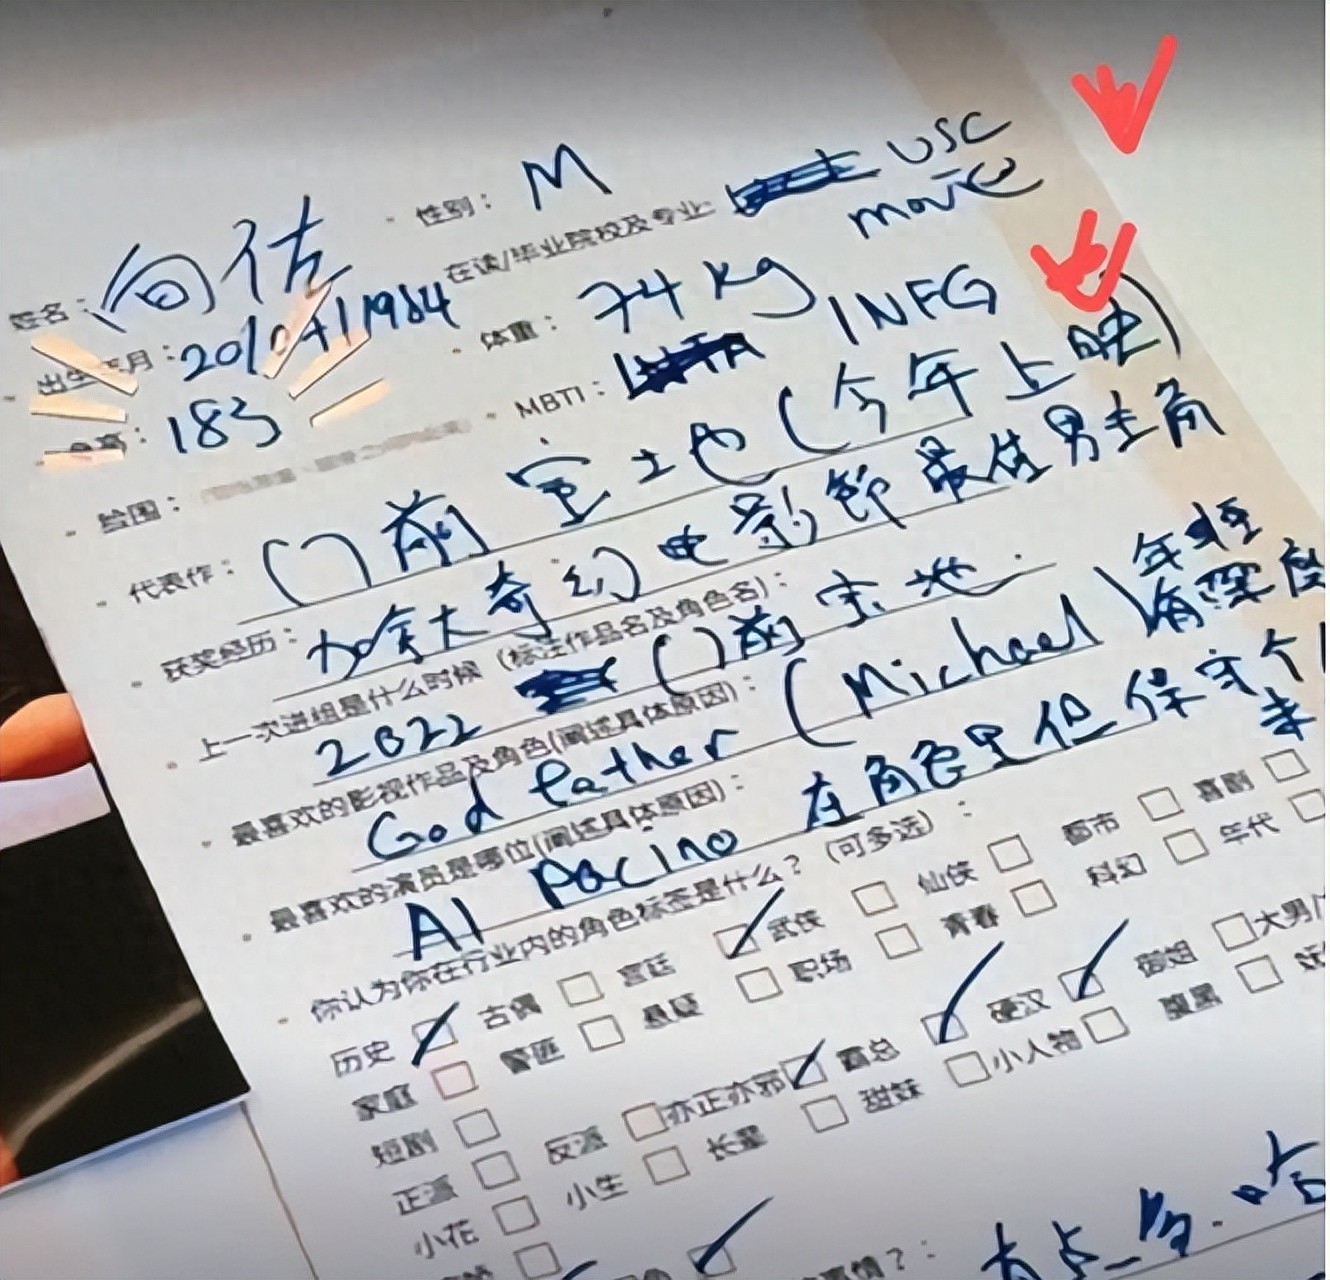 性别： M
USC
姓名： 向佐 在读/毕业院校及专业 movie
出生年月： 1984 体重： 74 kg
183 MBTI： INFG
绘图：
代表作： ()前宝地(今年上映)
获奖经历： 加拿大奇幻电影节最佳男主角
上一次进组是什么时候（标注作品名及角色名）：
2022 ()前宝地
最喜欢的影视作品及角色(阐述具体原因)： 年轻
God father (Michael) 有深度
最喜欢的演员是哪位(阐述具体原因)：
Al Pacino 在角色里但保守个
你认为你在行业内的角色标签是什么？（可多选）：
历史 古偶 宫廷 武侠 仙侠 都市 喜剧
家庭 警匪 悬疑 职场 青春 科幻 年代
短剧
正派 反派 亦正亦邪 霸总 硬汉 御姐 大男
小花 小生 长辈 甜妹 小人物 腹黑
事情？： 有点多.哈